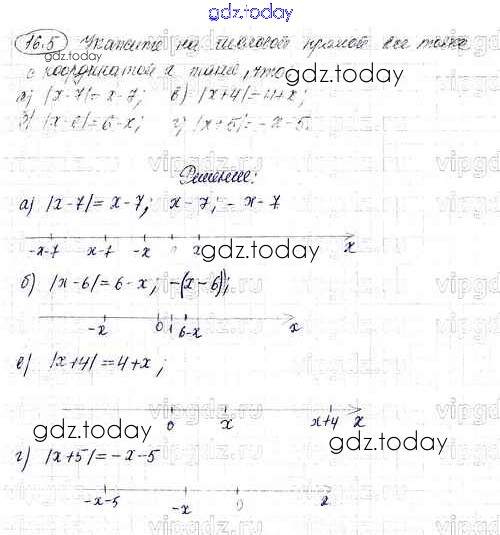 gdz.today
16.5 Укажите на числовой прямой все точки
с координатой x такие, что
gdz.today
а) |x-7|=x-7; в) |x+4|=4+x;
б) |x-6|=6-x; г) |x+5|=-x-5.
Решение:
а) |x-7|=x-7; x-7; -x-7
-x-7 x-7 -x x
gdz.today
б) |x-6|=6-x; -(x-6);
-x 0 1 6-x x
в) |x+4|=4+x;
0 x x+4 x
gdz.today gdz.today
г) |x+5|=-x-5
-x-5 -x 0 x